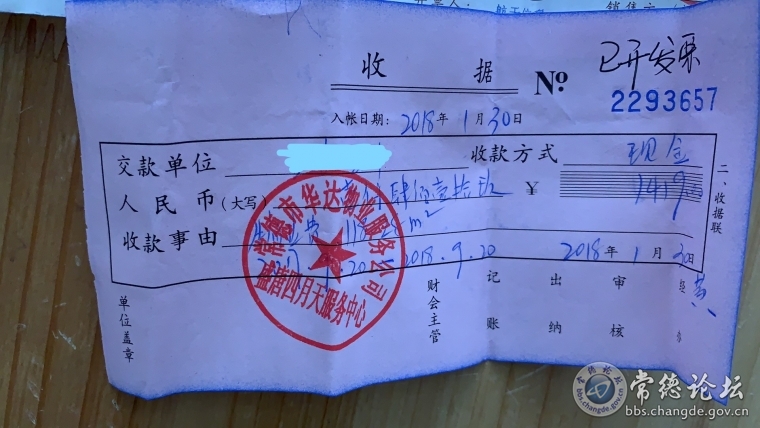 收 据
№ 已开发票
2293657
入帐日期: 2018年1月30日
交款单位 收款方式 现金
人民币(大写) 肆佰壹拾玖 ¥ 1419
收款事由 费 118 m²
2018.9.20 2018年1月30日
二、收据联
常德市华达物业服务公司
盛信四月天服务中心
单位盖章
财会主管
记账
出纳
审核
经办 黄
常德论坛
bbs.changde.gov.cn